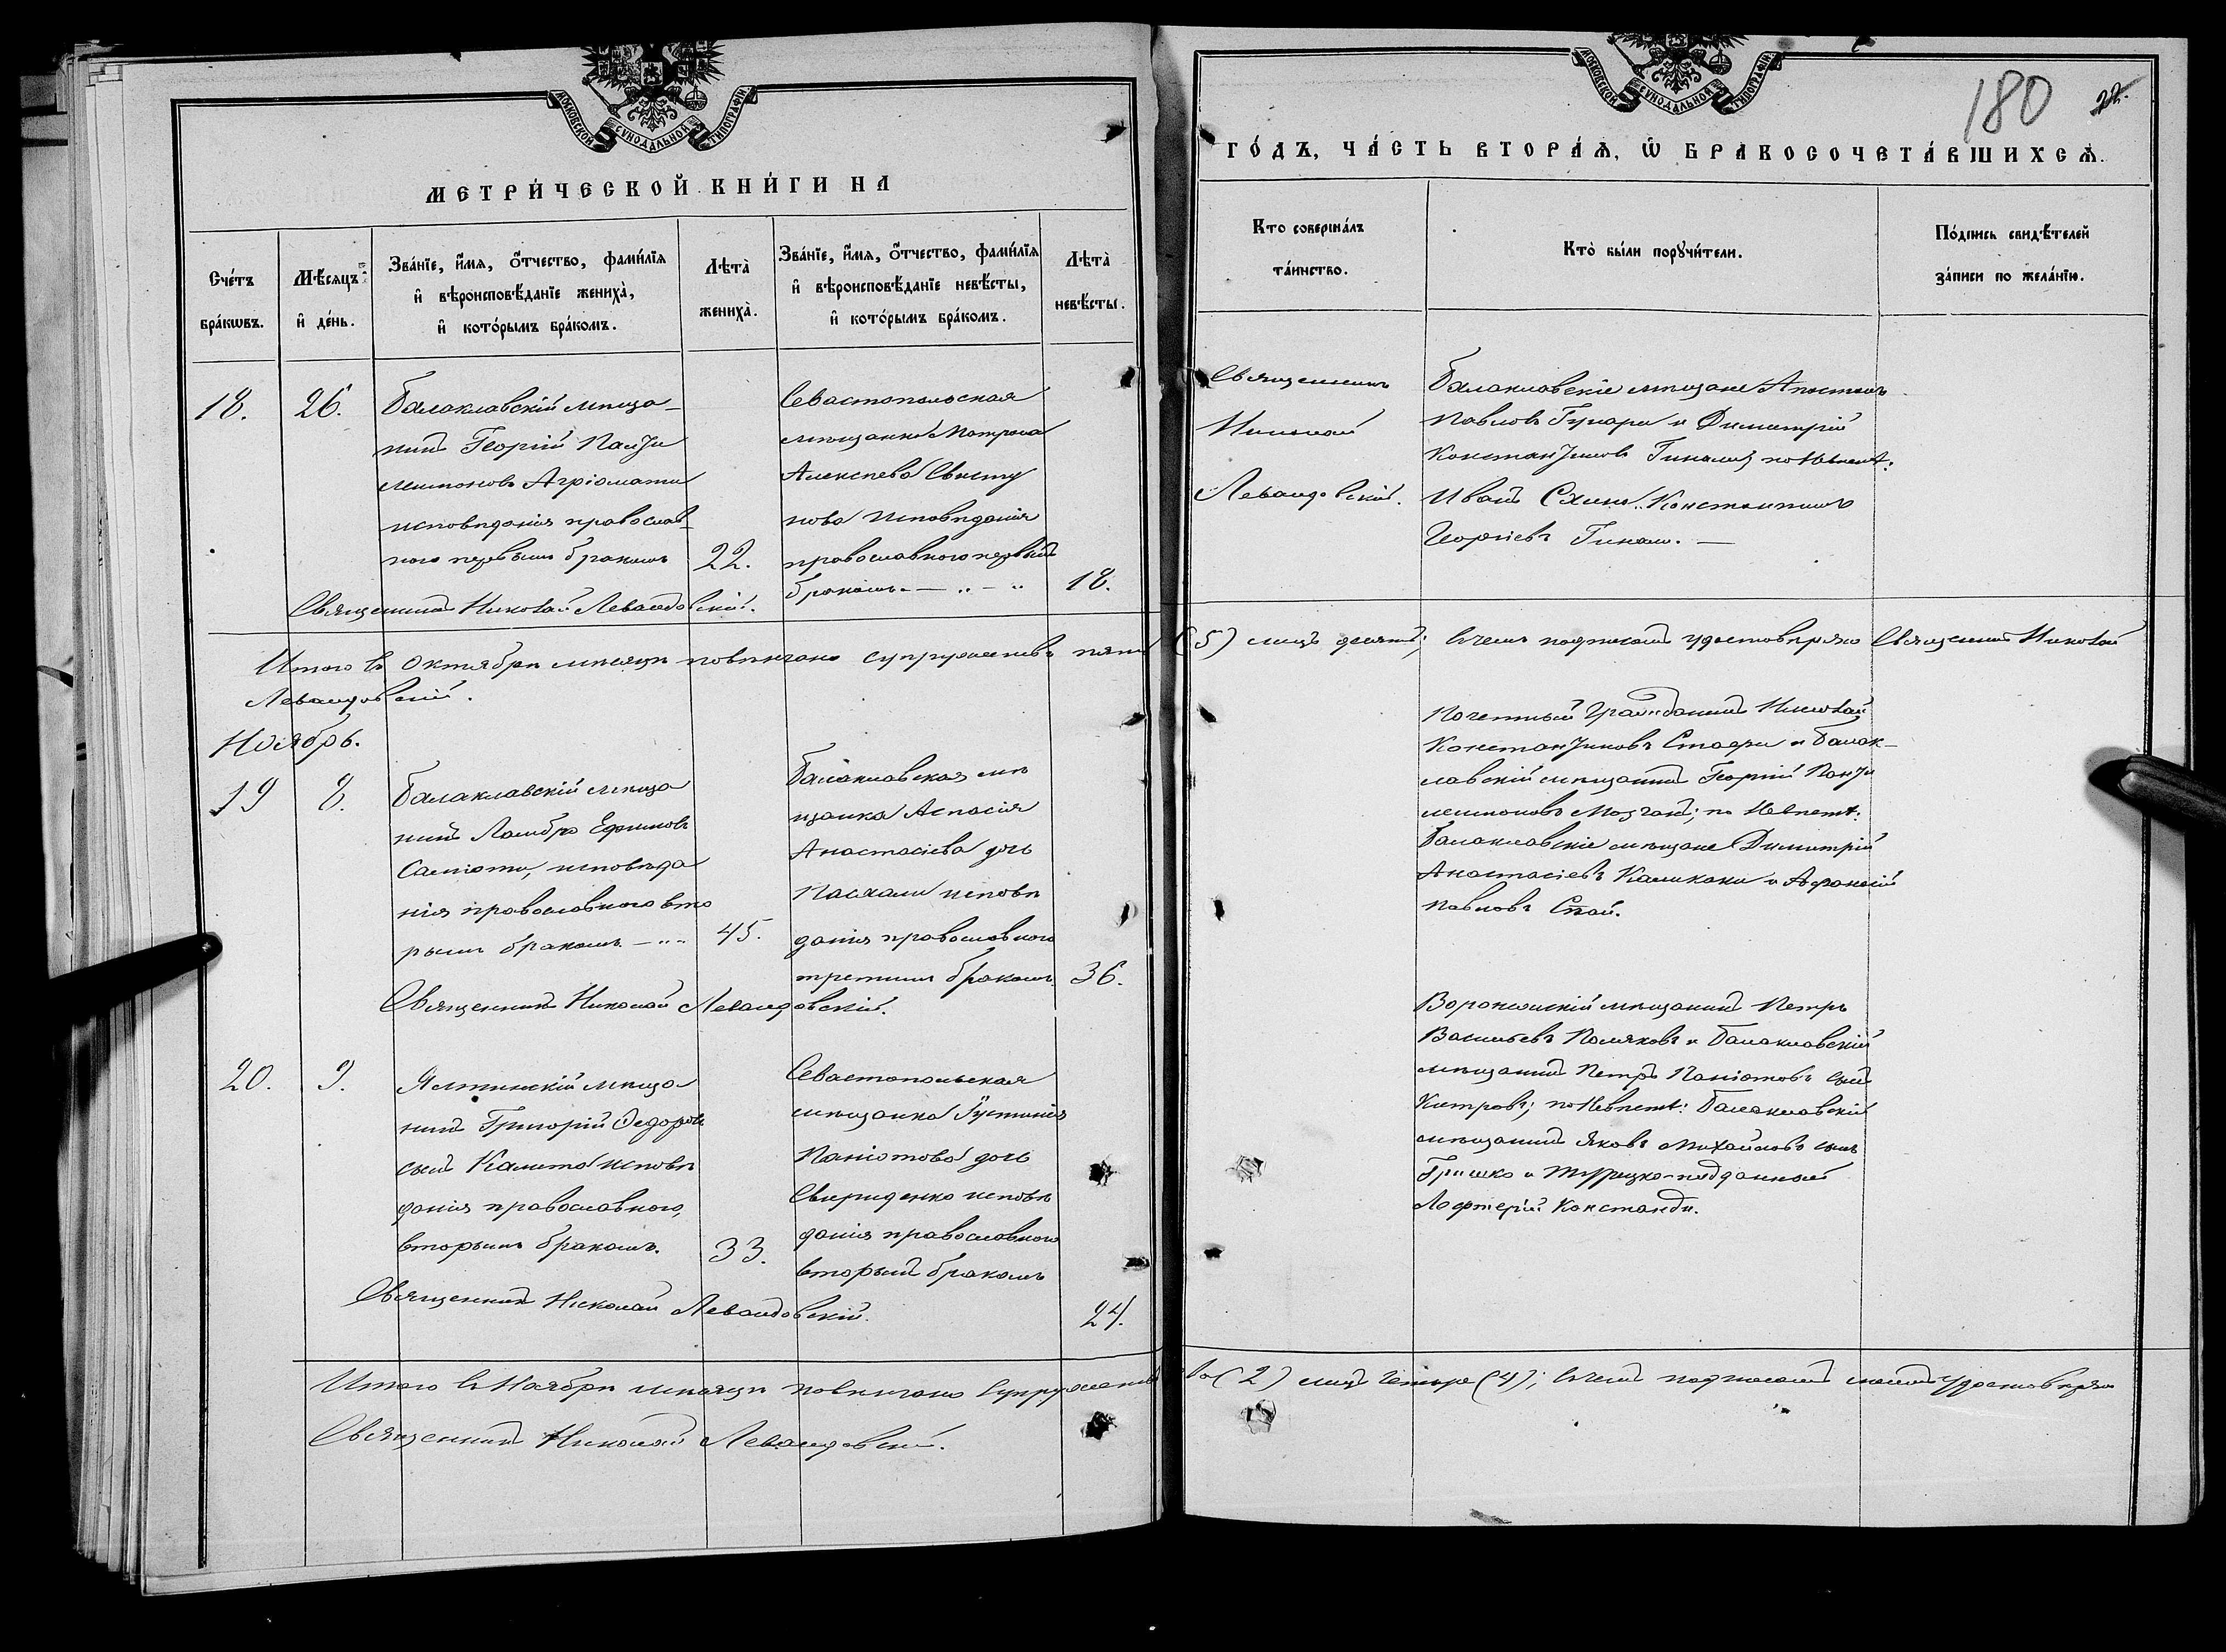 МОСКОВСКОЙ СѴНОДАЛЬНОЙ ТИПОГРАФІИ
МЕТРИ́ЧЕСКОЙ КНИ́ГИ НА
Сче́тъ бра́кѡвъ.
Мѣ́сяцъ и҆ де́нь.
Зва́нїе, и҆́мя, ѻ҆́тчество, фами́лїя
и҆ вѣроисповѣ́данїе жениха̀,
и҆ кото́рымъ бра́комъ.
Лѣта̀ жениха̀.
Зва́нїе, и҆́мя, ѻ҆́тчество, фами́лїя
и҆ вѣроисповѣ́данїе невѣ́сты,
и҆ кото́рымъ бра́комъ.
Лѣта̀ невѣ́сты.
18.
26.
Балаклавскій мѣща-
нинъ Георгій Панте
лимоновъ Агріомати
исповѣданія православ-
наго первымъ бракомъ
22.
Севастопольская
мѣщанка Матрона
Алексѣева
нова исповѣданія
православного первый
бракомъ. — „ — „
18.
Священникъ Николай Левандовскій.
Итого въ Октябрѣ мѣсяцѣ повѣнчано супружествъ пять (5) лицъ десять; въ чемъ подписомъ удостовѣряю Священникъ Николай
Левандовскій.
Ноябрь.
19
8.
Балаклавскій мѣща
нинъ Ламбро Ефимовъ
исповѣда
нія православного вто
рымъ бракомъ — „ „
45.
Балаклавская мѣ
щанка Аспасія
Анастасіева дочь
Пасхали исповѣ
данія православного
третьимъ бракомъ
36.
Священникъ Николай Левандовскій.
20.
9.
Ялтинскій мѣща
нинъ Григорій Ѳедоровъ
сынъ исповѣ
данія православного,
вторымъ бракомъ.
33.
Севастопольская
мѣщанка Іустинія
Паніотова дочь
Свириденко исповѣ
данія православного
вторый бракомъ
24.
Священникъ Николай Левандовскій.
Итого въ Ноябрѣ мѣсяцѣ повѣнчано супружества (2) лицъ четыре (4); въ чемъ подписомъ удостовѣряю
Священникъ Николай Левандовскій.
МОСКОВСКОЙ СѴНОДАЛЬНОЙ ТИПОГРАФІИ
180
22.
ГО́ДЪ, ЧА́СТЬ ВТОРА́Я, Ѡ҆ БРАКОСОЧЕТА́ВШИХСЯ.
Кто соверша́лъ та́инство.
Кто̀ бы́ли порꙋчи́тели.
По́дпись свидѣ́телей за́писи по жела́нїю.
Священникъ
Николай
Левандовскій.
Балаклавскіе мѣщане Апостолъ
Павловъ и Димитрій
Константиновъ Гинали; по Невѣстѣ:
Иванъ Константинъ
Георгіевъ Гинали. —
Почетный Гражданинъ Николай
Константиновъ и Балак-
лавскій мѣщанинъ Георгій Панте
лимоновъ по Невѣстѣ:
Балаклавскіе мѣщане Димитрій
Анастасіевъ и Афанасій
Павловъ
мѣщанинъ Петръ
Васильевъ Поляковъ и Балаклавскій
мѣщанинъ Петръ Паніотовъ сынъ
по Невѣстѣ: Балаклавскій
мѣщанинъ Яковъ Михайловъ сынъ
Гришко и Турецко-подданный
Лофтерій Констанди.